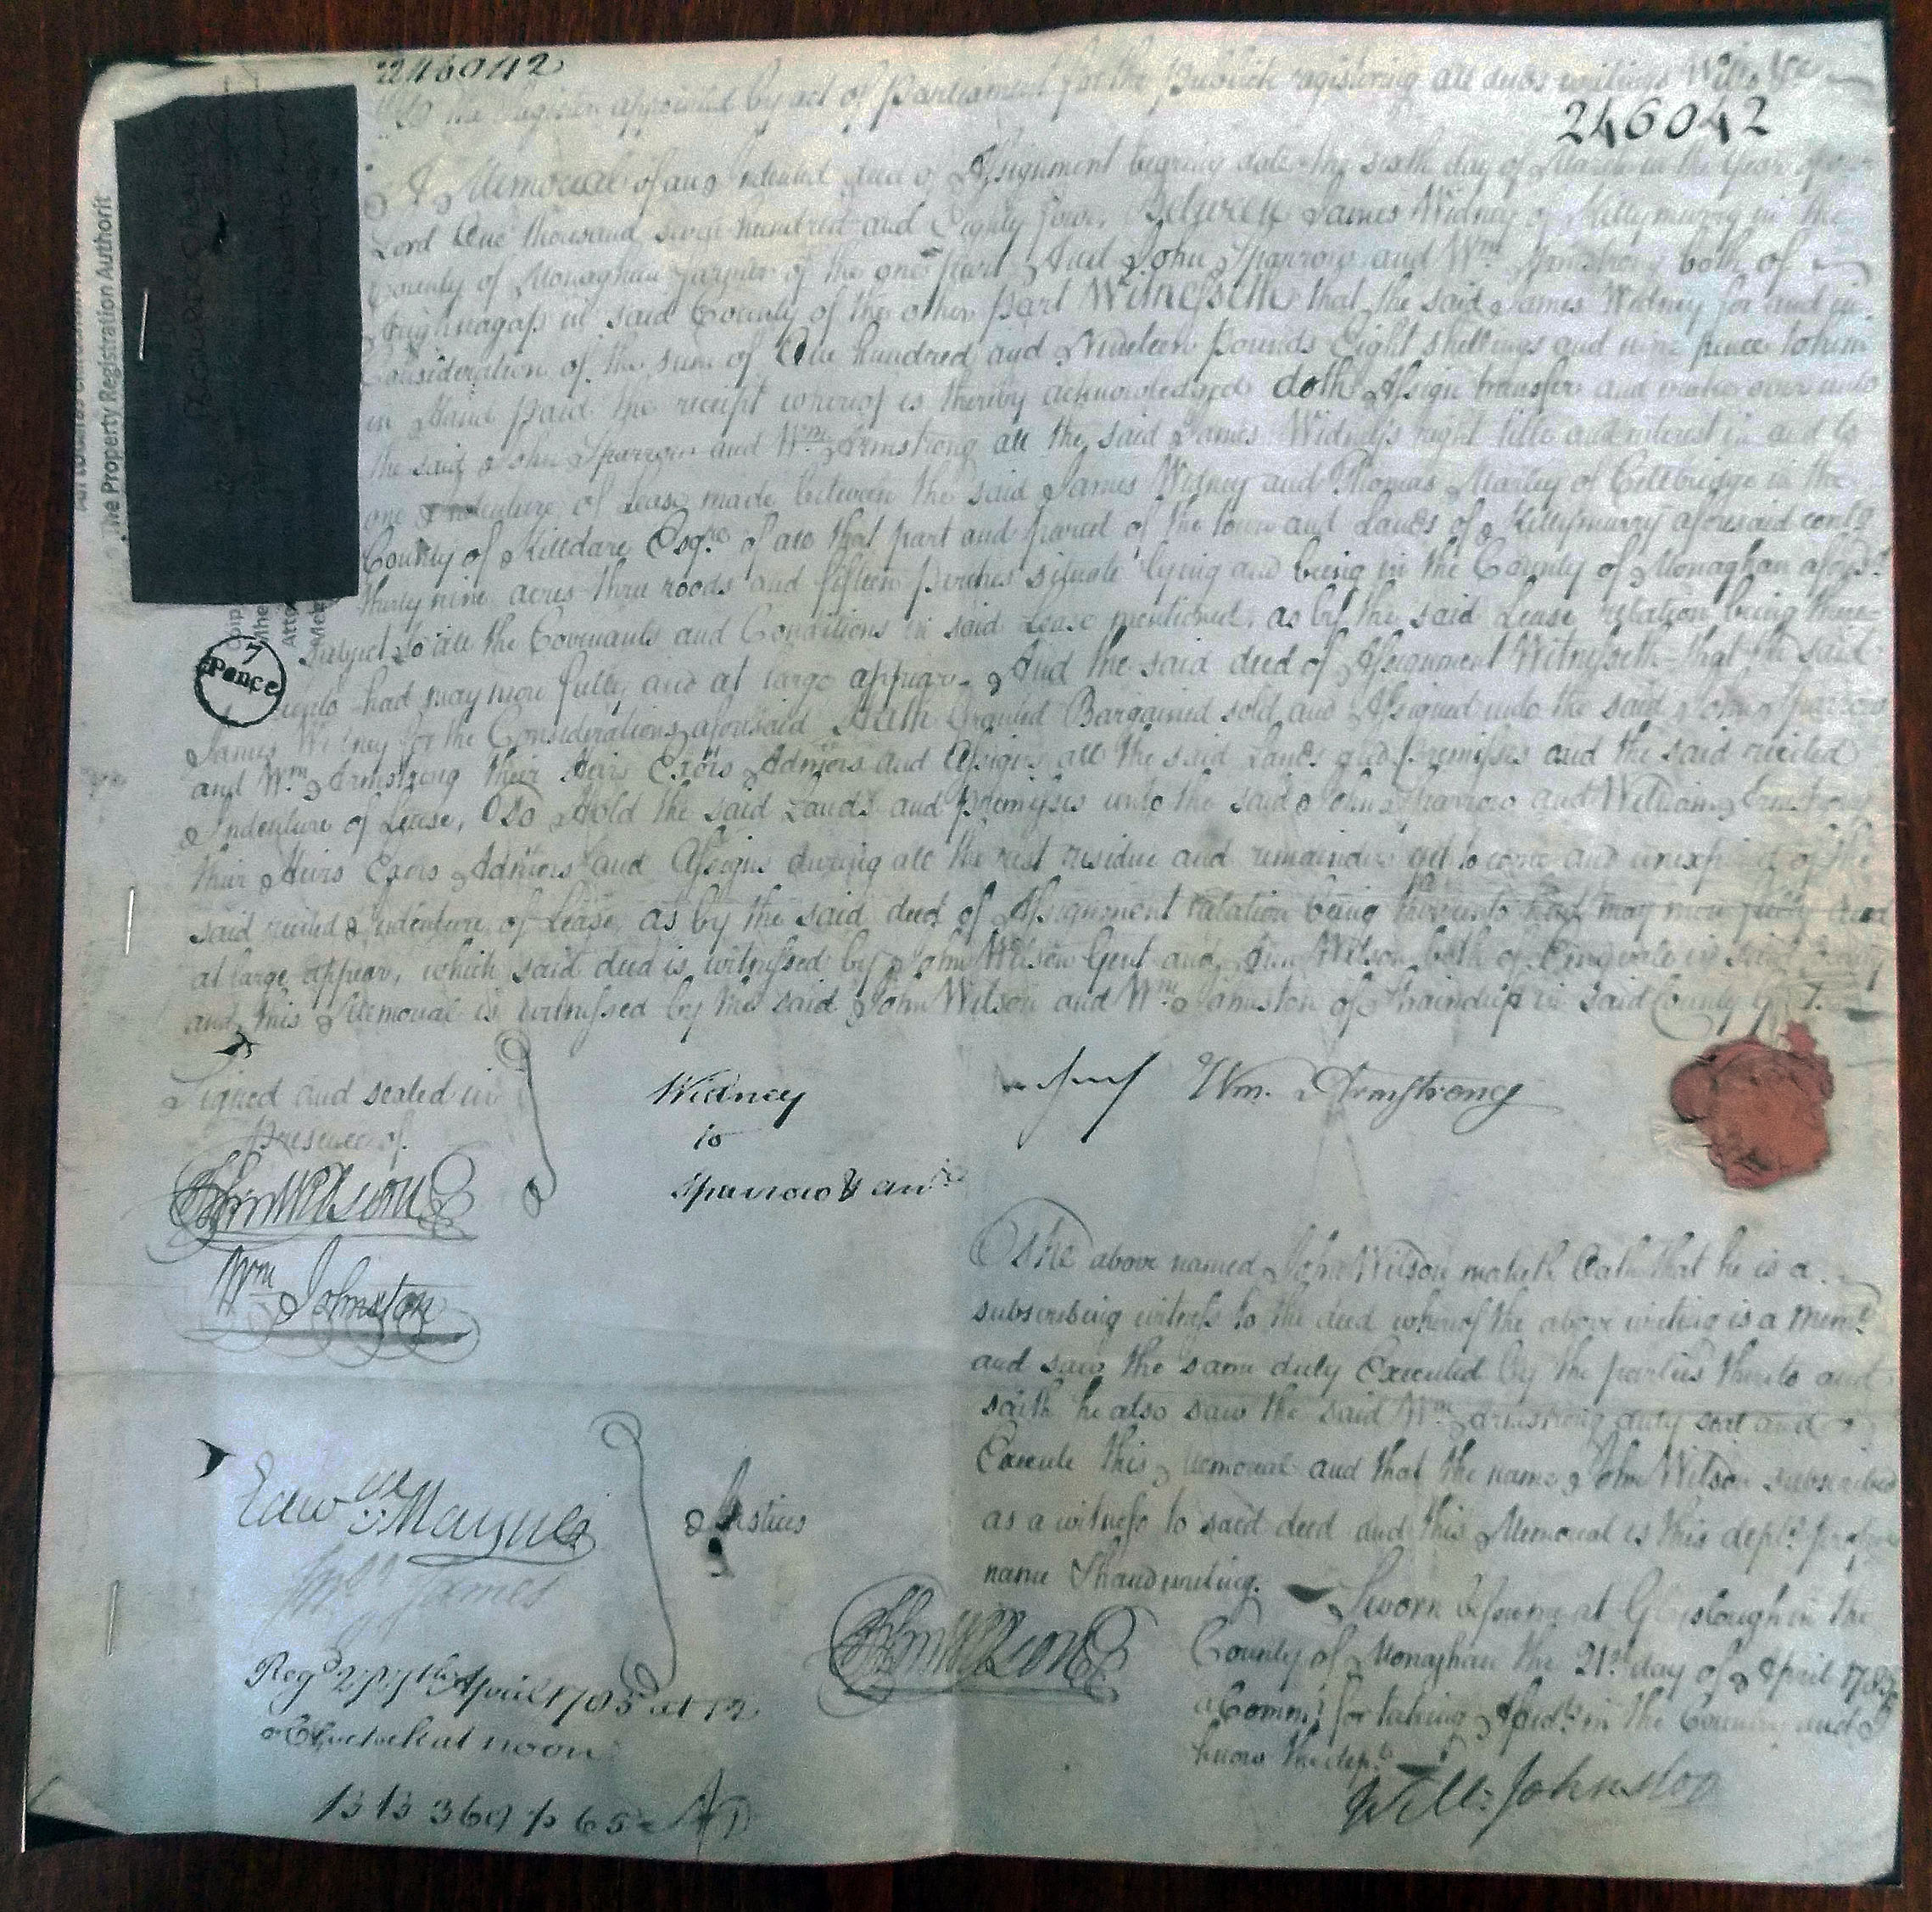 246042
To the Register appointed by act of Parliament for the Publick registering all deeds writings Wills &c
246042
A Memorial of an Indented deed of Assignment bearing date the sixth day of March in the Year of our
Lord One thousand seven hundred and Eighty four, Between James Widney of Killymurry in the
County of Monaghan Farmer of the one part And John Sparrow and Wm Armstrong both of
in said County of the other part Witnesseth that the said James Widney for and in
Consideration of the sum of One hundred and Nineteen pounds Eight shillings and nine pence to him
in Hand paid the receipt whereof is thereby acknowledged doth Assign transfer and make over unto
the said John Sparrow and Wm Armstrong all the said James Widney's right title and interest in and to
one Indenture of Lease made between the said James Widney and Thomas Marley of Cellbridge in the
County of Killdare Esqr. of all that part and parcel of the town and Lands of Killymurry aforesaid contg
thirty nine acres three roods and fifteen perches situate lying and being in the County of Monaghan aforsd.
Subject to all the Covenants and Conditions in said Lease mentioned, as by the said Lease relation being there
unto had may more fully and at large appear. And the said deed of Assignment Witnesseth that the said
James Widney for the Considerations aforesaid Hath Granted Bargained sold and Assigned unto the said John Sparrow
and Wm Armstrong their Heirs Exors Admors and Assigns all the said Lands and premises and the said recited
Indenture of Lease, To Hold the said Lands and premises unto the said John Sparrow and William Armstrong
their Heirs Exors Admors and Assigns during all the rest residue and remainder yet to come and unexpired of the
said recited Indenture of Lease, as by the said deed of Assignment relation being thereunto had may more fully and
at large appear, which said deed is witnessed by John Wilson Gent and Wilson both of in said County
and this Memorial is witnessed by the said John Wilson and Wm Johnston of in said County
Signed and sealed in
presence of
John Wilson
Wm Johnston
Widney
to
Sparrow & anr
Wm. Armstrong
The above named John Wilson maketh Oath that he is a
subscribing witness to the deed whereof the above writing is a Meml.
and saw the same duly Executed by the parties thereto and
saith he also saw the said Wm Armstrong duly seal and
Execute this Memorial and that the name John Wilson subscribed
as a witness to said deed and this Memorial is this depts. proper
name & handwriting.
Sworn before me at Glaslough in the
County of Monaghan the 21st day of April 1785
a Commr. for taking Affidts. in the County and I
know the dept.
Will: Johnston
John Wilson
Edwd. Mayne
James
Justices
Regd 27th April 1785 at 12
o Clock at noon
B B 369 p 65
7
Pence
The Property Registration Authorit